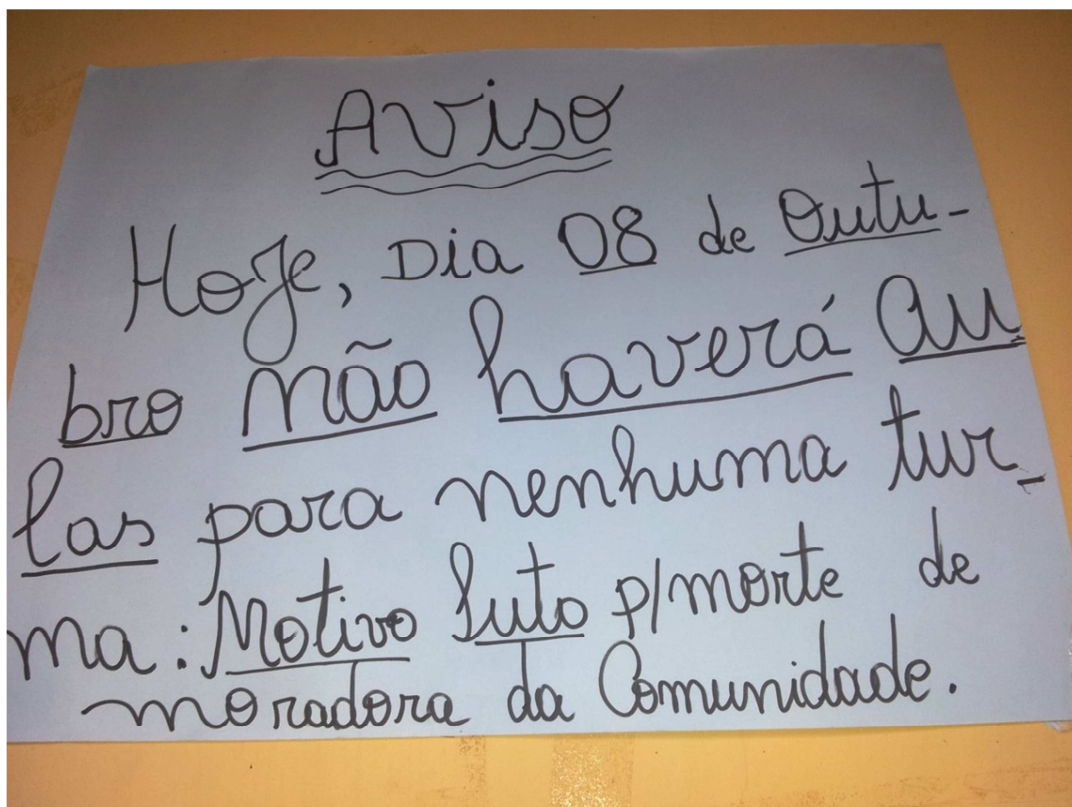 Aviso
Hoje, Dia 08 de Outu-
bro não haverá au
las para nenhuma tur-
ma: Motivo luto p/morte de
moradora da Comunidade.